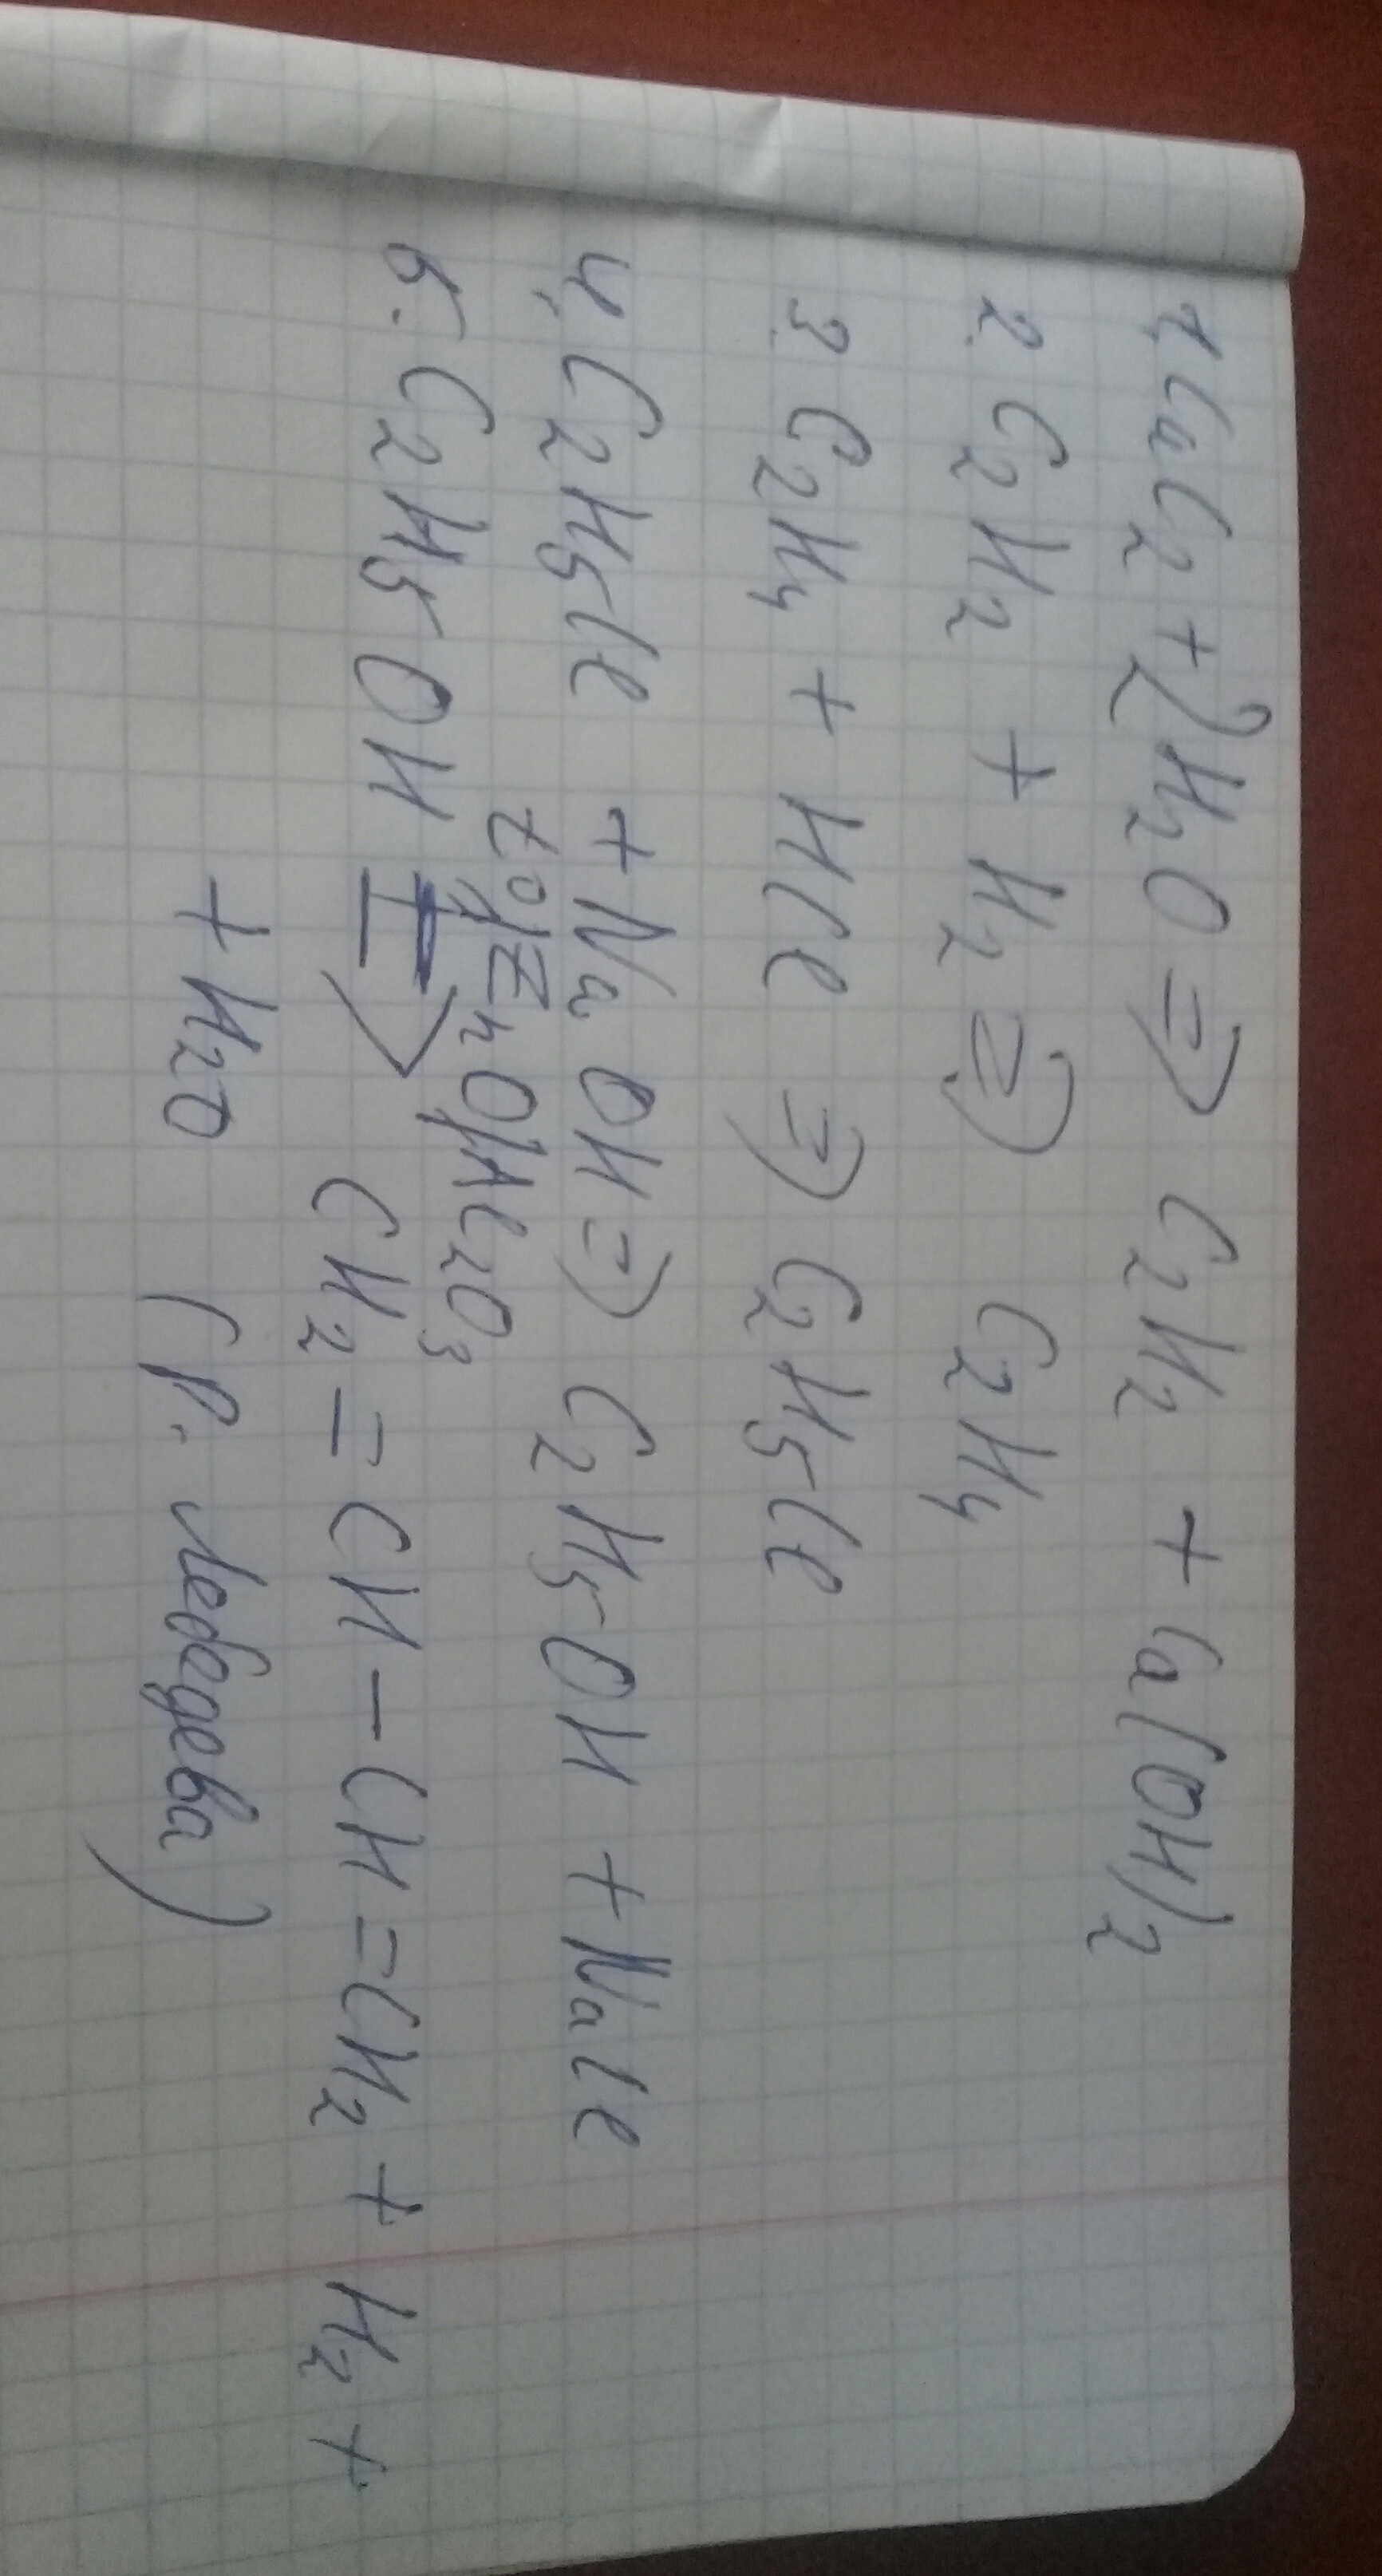 1. CaC2 + 2H2O => C2H2 + Ca(OH)2
2. C2H2 + H2 => C2H4
3. C2H4 + HCl => C2H5Cl
4. C2H5Cl + NaOH => C2H5OH + NaCl
t°, ZnO, Al2O3
5. C2H5OH => CH2=CH-CH=CH2 + H2 +
+ H2O (р. Лебедева)